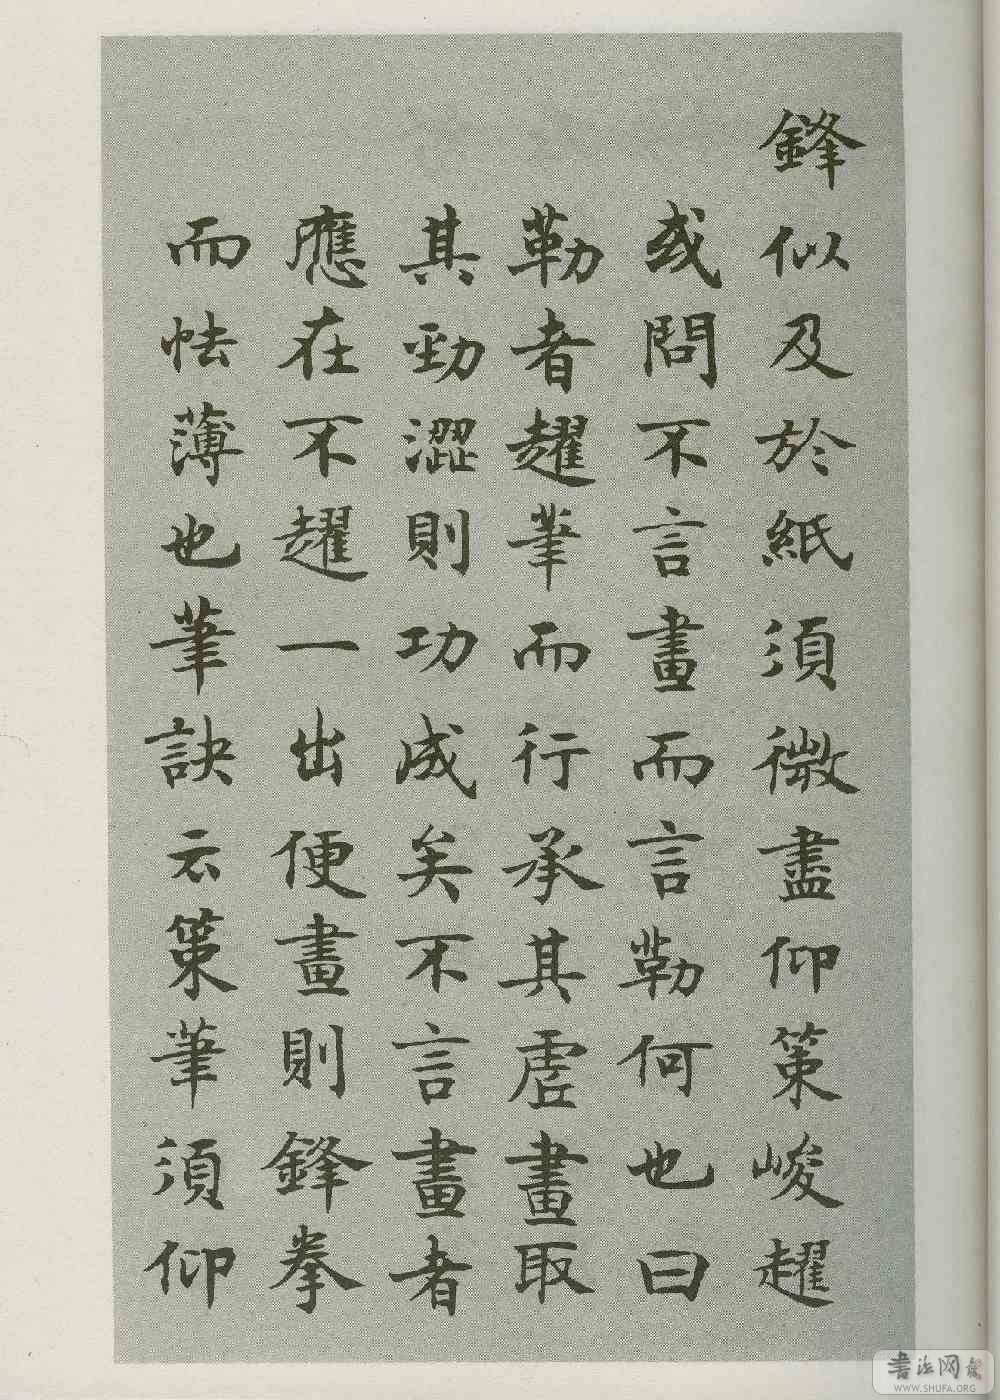 鋒似及於紙須微盡仰策峻趯
或問不言畫而言勒何也曰
勒者趯筆而行承其虗畫取
其勁澀則功成矣不言畫者
應在不趯一出便畫則鋒拳
而怯薄也筆訣云策筆須仰
書法网
WWW.SHUFA.ORG